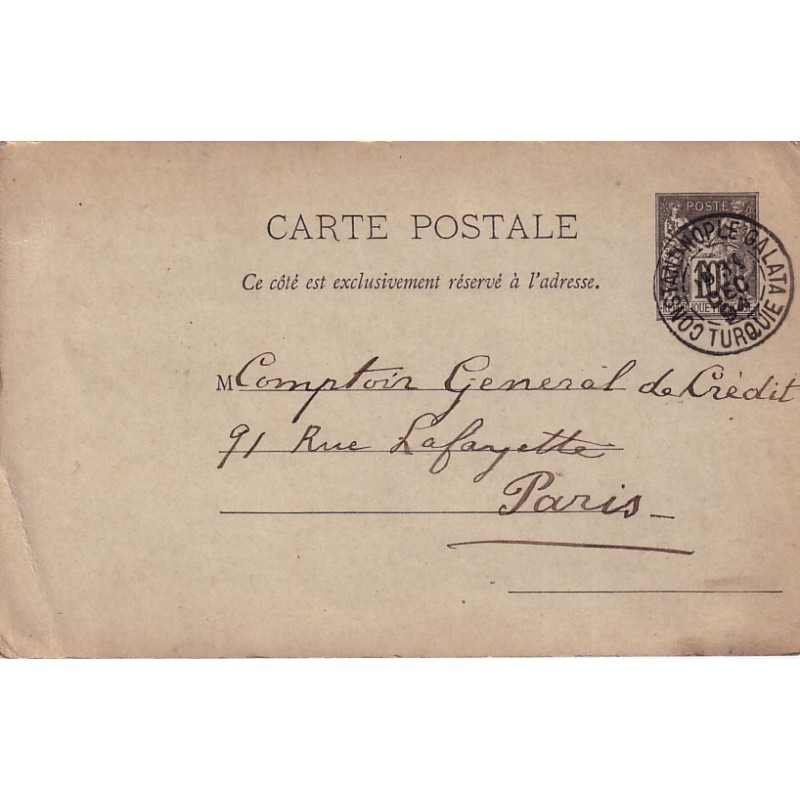 POSTES
CARTE POSTALE
CONSTANTINOPLE-GALATA
DEC
TURQUIE
10
Ce côté est exclusivement réservé à l'adresse.
M Comptoir General de Crédit
91 Rue Lafayette
Paris